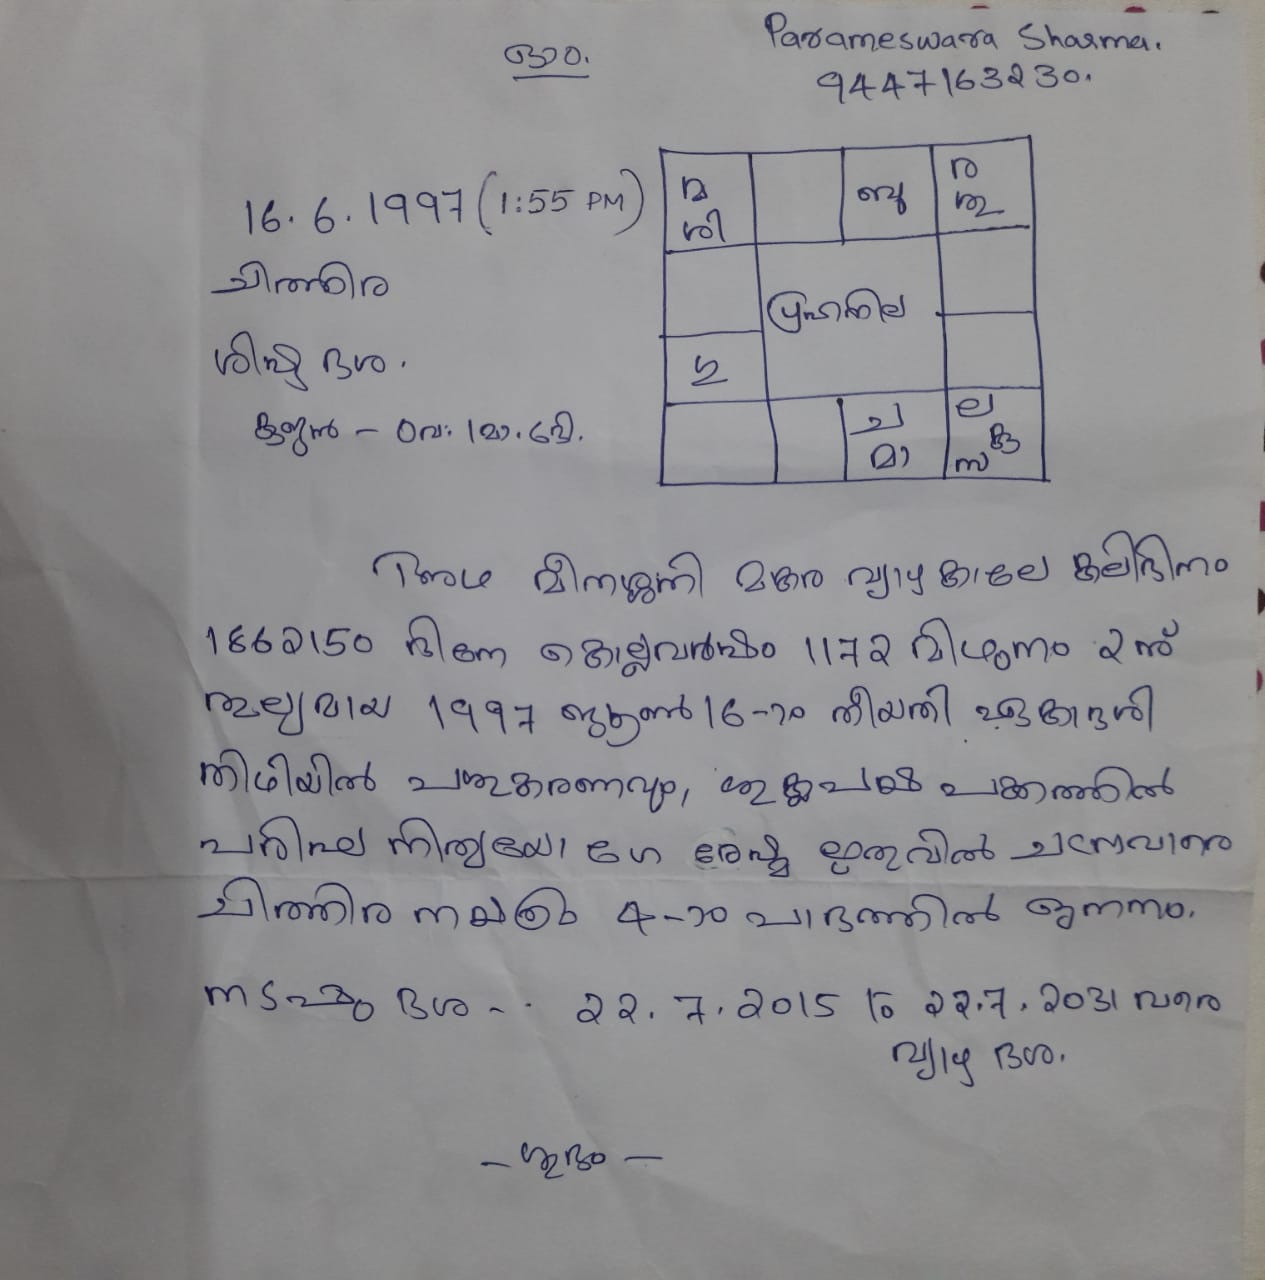 ഓം.
Parameswara Sharma.
9447163230.
16.6.1997 (1:55 PM)
ചിത്തിര
ശിഷ്ട ദശ.
കുജൻ - 0വ: 1മാ. 6ദി.
മ
ശി
ബു
ര
ശു
ഗ്രഹനില
ഗു
ച
മാ
ല
കു
സ
അഥ മീനശനി മകര വ്യാഴ കാലേ കലിദിനം
1862150 ദിനേ കൊല്ലവർഷം 1172 മിഥുനം 2ന്
തുല്യമായ 1997 ജൂൺ 16-ാം തീയതി ഏകാദശി
തിഥിയിൽ പശുകരണവും, ശുക്ലപക്ഷ പക്കത്തിൽ
പരിഘ നിത്യയോഗേ ഗ്രീഷ്മ ഋതുവിൽ
ചിത്തിര നക്ഷത്രം 4-ാം പാദത്തിൽ ജനനം.
നടപ്പു ദശ -. 22.7.2015 to 22.7.2031 വരെ
വ്യാഴ ദശ.
- ശുഭം -